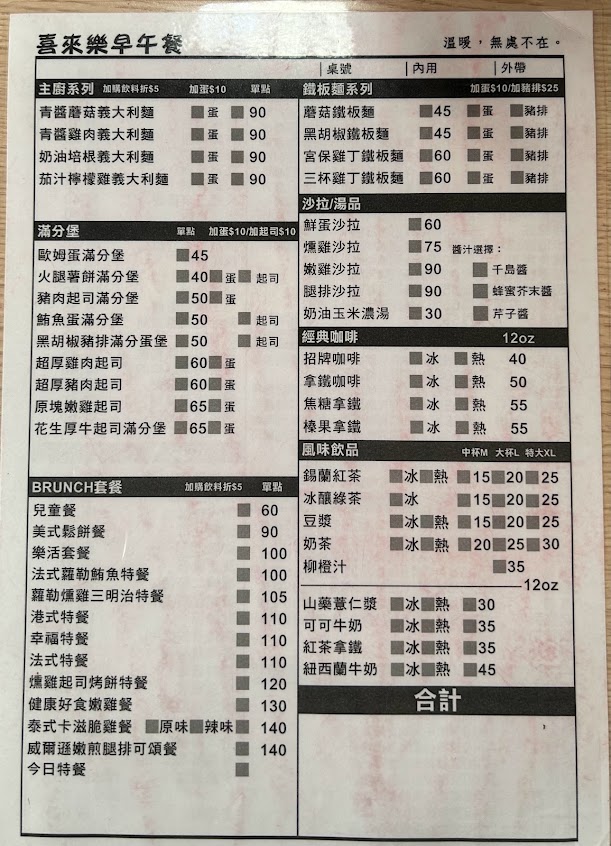 喜來樂早午餐
溫暖，無處不在。
桌號 內用 外帶
主廚系列 加購飲料折$5 加蛋$10 單點
青醬蘑菇義大利麵 蛋 90
青醬雞肉義大利麵 蛋 90
奶油培根義大利麵 蛋 90
茄汁檸檬雞義大利麵 蛋 90
滿分堡 單點 加蛋$10/加起司$10
歐姆蛋滿分堡 45
火腿薯餅滿分堡 40 蛋 起司
豬肉起司滿分堡 50 蛋
鮪魚蛋滿分堡 50 起司
黑胡椒豬排滿分蛋堡 50 起司
超厚雞肉起司 60 蛋
超厚豬肉起司 60 蛋
原塊嫩雞起司 65 蛋
花生厚牛起司滿分堡 65 蛋
BRUNCH套餐 加購飲料折$5 單點
兒童餐 60
美式鬆餅餐 90
樂活套餐 100
法式蘿勒鮪魚特餐 100
蘿勒燻雞三明治特餐 105
港式特餐 110
幸福特餐 110
法式特餐 110
燻雞起司烤餅特餐 120
健康好食嫩雞餐 130
泰式卡滋脆雞餐 原味 辣味 140
威爾遜嫩煎腿排可頌餐 140
今日特餐
鐵板麵系列 加蛋$10/加豬排$25
蘑菇鐵板麵 45 蛋 豬排
黑胡椒鐵板麵 45 蛋 豬排
宮保雞丁鐵板麵 60 蛋 豬排
三杯雞丁鐵板麵 60 蛋 豬排
沙拉/湯品
鮮蛋沙拉 60
燻雞沙拉 75 醬汁選擇：
嫩雞沙拉 90 千島醬
腿排沙拉 90 蜂蜜芥末醬
奶油玉米濃湯 30 芹子醬
經典咖啡 12oz
招牌咖啡 冰 熱 40
拿鐵咖啡 冰 熱 50
焦糖拿鐵 冰 熱 55
榛果拿鐵 冰 熱 55
風味飲品 中杯M 大杯L 特大XL
錫蘭紅茶 冰 熱 15 20 25
冰釀綠茶 冰 15 20 25
豆漿 冰 熱 15 20 25
奶茶 冰 熱 20 25 30
柳橙汁 35
12oz
山藥薏仁漿 冰 熱 30
可可牛奶 冰 熱 35
紅茶拿鐵 冰 熱 35
紐西蘭牛奶 冰 熱 45
合計